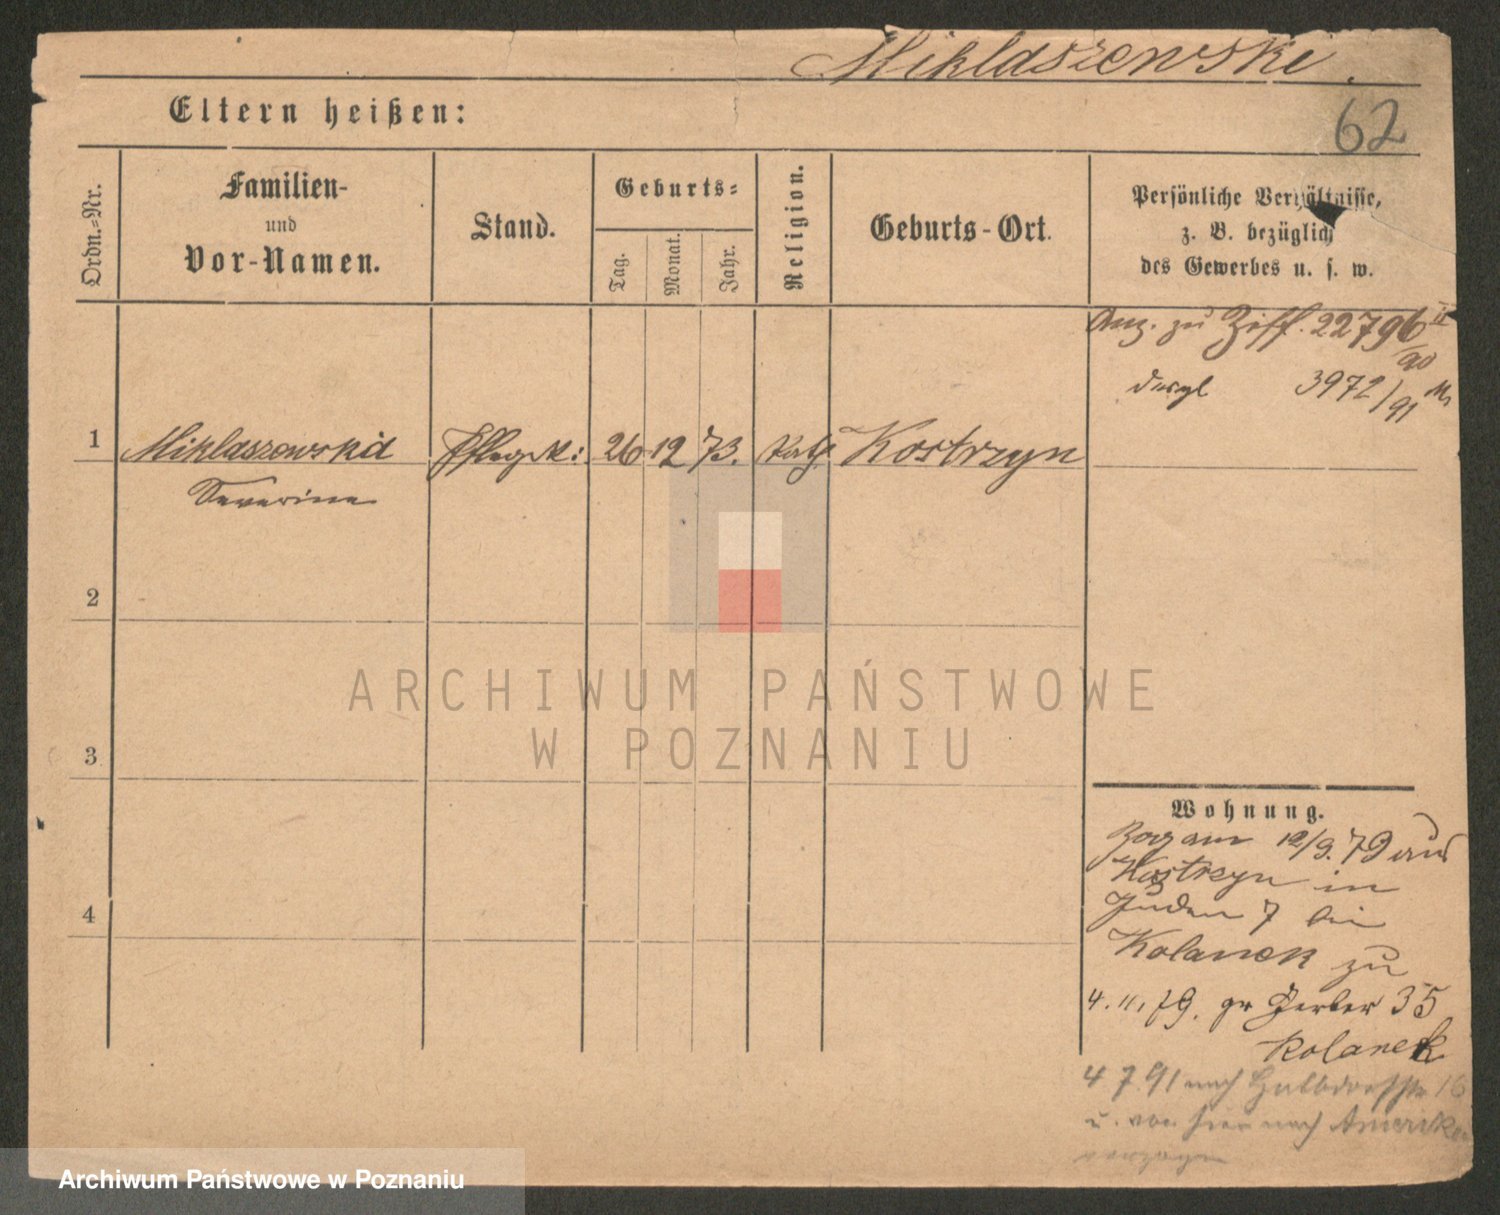 Miklaszewski.
Eltern heißen:
62
Ordn.-Nr.
Familien-
und
Vor-Namen.
Stand.
Geburts-
Tag.
Monat.
Jahr.
Religion.
Geburts-Ort.
Persönliche Verhältnisse,
z. B. bezüglich
des Gewerbes u. s. w.
Anz. zu Ziff. 22796 II/90
desgl 3972/91
1 Miklaszewska Pflegek: 26 12 73. kath Kostrzyn
Severine
2
3
4
Wohnung.
Zog am 12/9. 79 aus
Kostrzyn in
Juden 7 bei
Kolanek zu
4. 11. 79. gr Gerber 35
Kolanek
4 7 91 nach Halbdorfstr 16
u. von hier nach Amerika
verzogen
ARCHIWUM PAŃSTWOWE
W POZNANIU
Archiwum Państwowe w Poznaniu